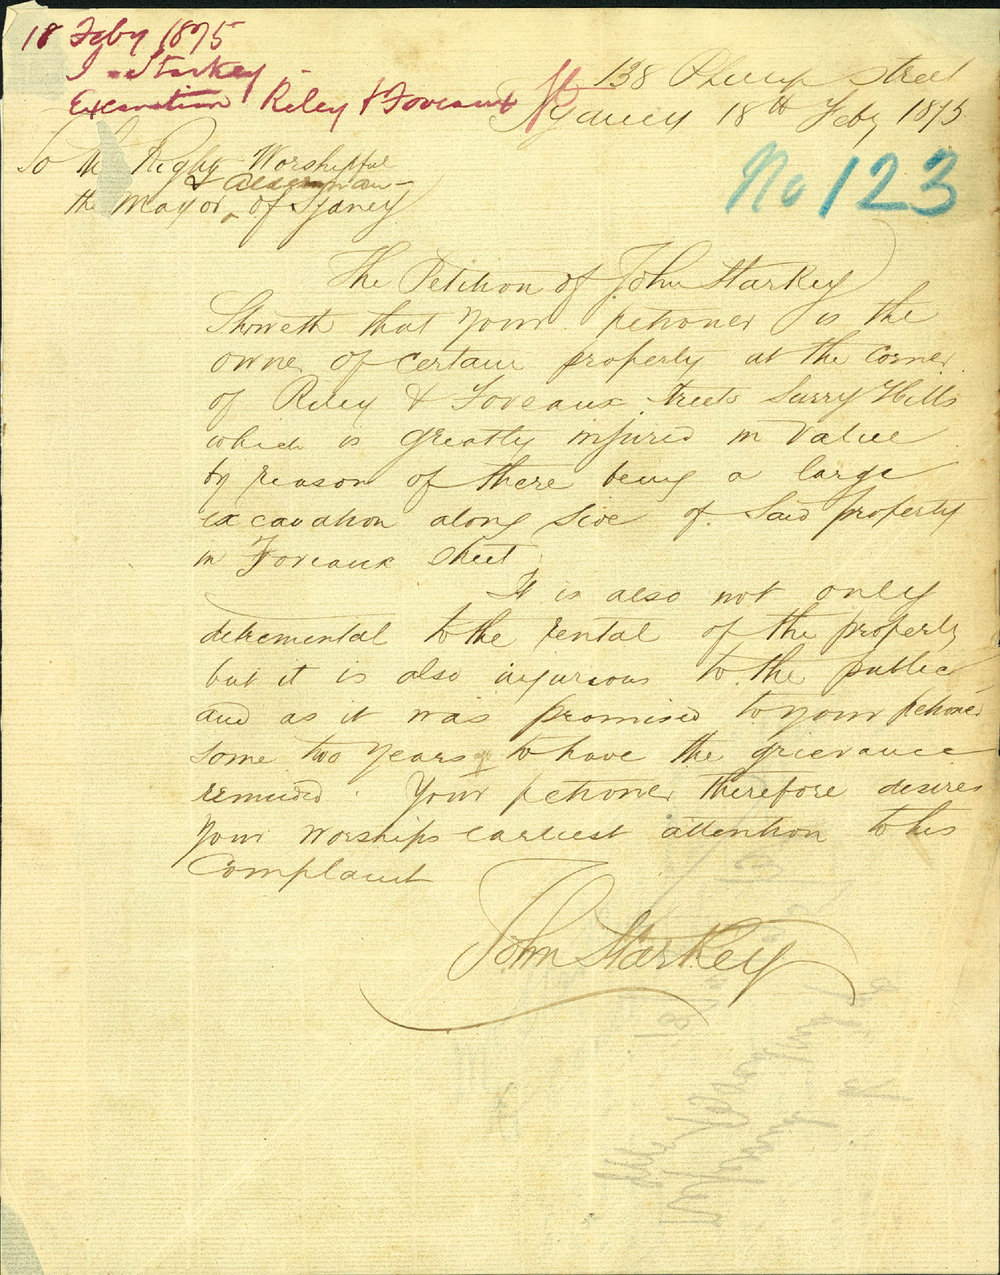 18 Feby 1875
J Starkey
Excavation Riley & Foveaux St
138 Phillip Street
Sydney 18th Feby 1875
No 123
To the Right Worshipful
& Aldermen
the Mayor ^ of Sydney
The Petition of John Starkey
Showeth that your petioner is the
owner of certain property at the corner
of Riley & Foveaux Streets Surry Hills
which is greatly injured in value
by reason of there being a large
excavation along side of said property
in Foveaux Street.
It is also not only
detremental to the rental of the property
but it is also injurious to the public
and as it was promised to your petioner
some two years ago to have the grievance
remidied. Your petioner therefore desires
your worships earliest attention to his
Complaint
John Starkey